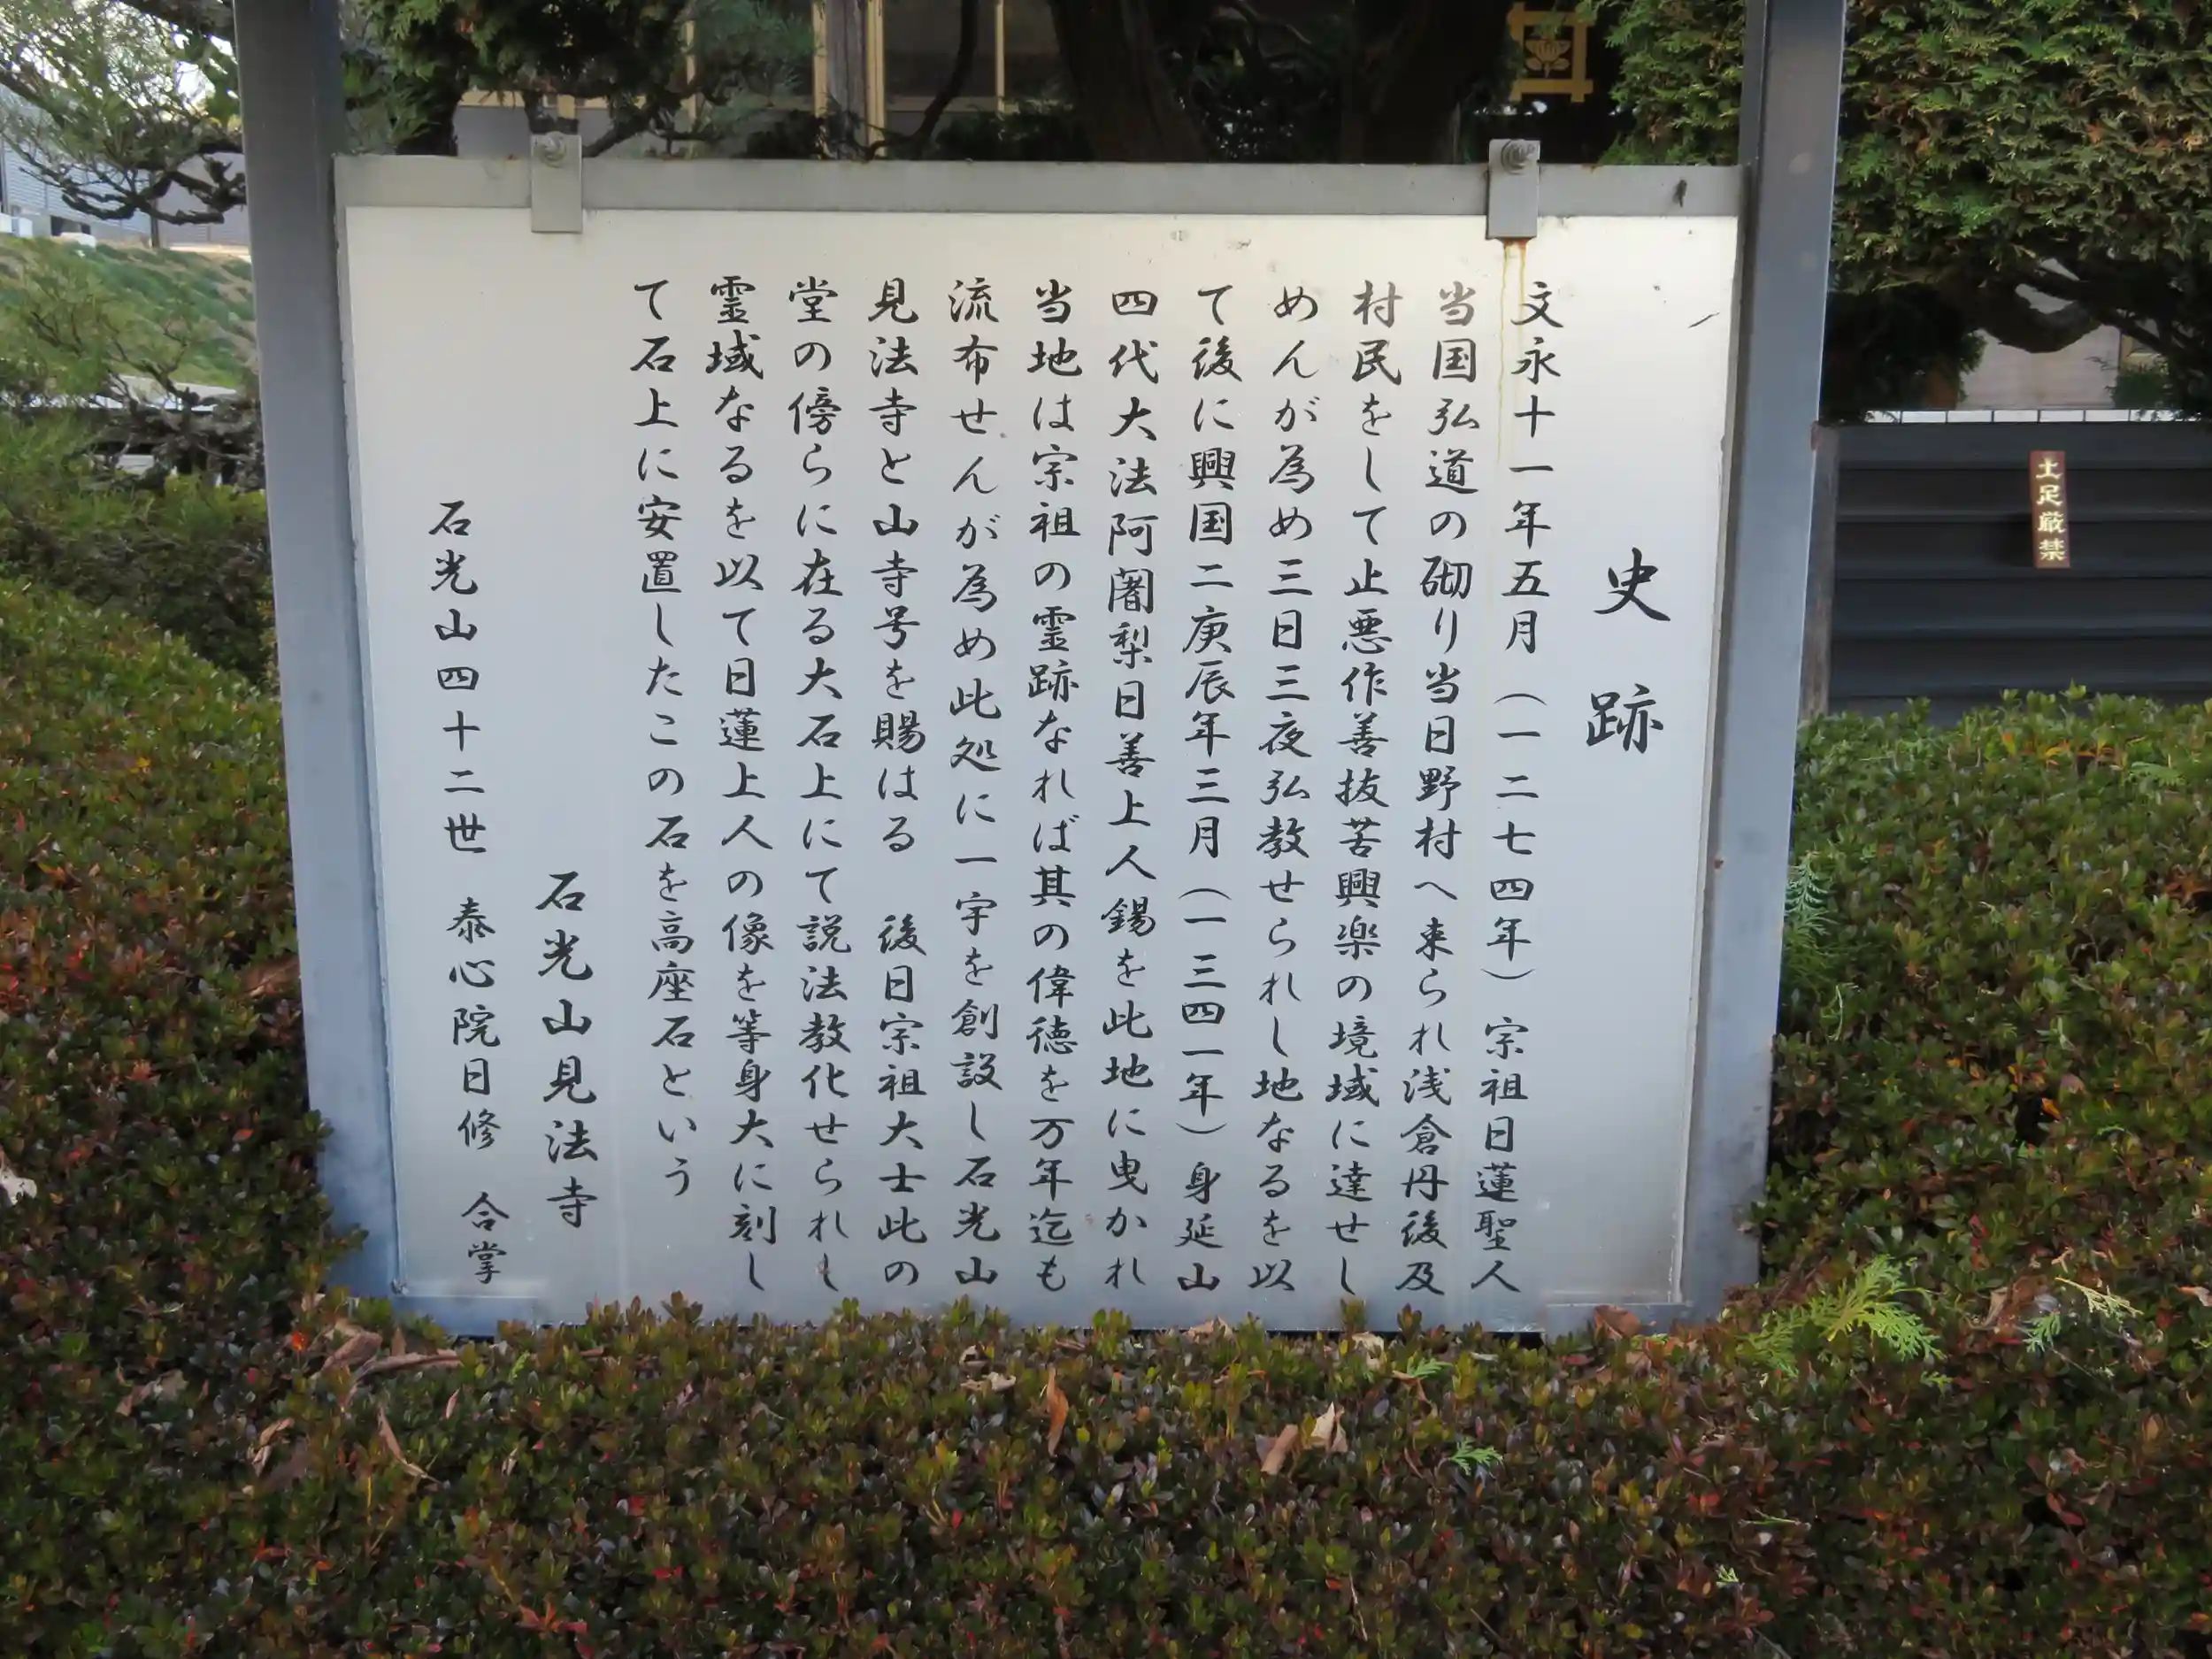 史跡
文永十一年五月（一二七四年）宗祖日蓮聖人
当国弘道の砌り当日野村へ来られ浅倉丹後及
村民をして止悪作善抜苦興楽の境域に達せし
めんが為め三日三夜弘教せられし地なるを以
て後に興国二庚辰年三月（一三四一年）身延山
四代大法阿闍梨日善上人錫を此地に曳かれ
当地は宗祖の霊跡なれば其の偉徳を万年迄も
流布せんが為め此処に一宇を創設し石光山
見法寺と山寺号を賜はる　後日宗祖大士此の
堂の傍らに在る大石上にて説法教化せられし
霊域なるを以て日蓮上人の像を等身大に刻し
て石上に安置したこの石を高座石という
石光山見法寺
石光山四十二世　泰心院日修　合掌
土足厳禁